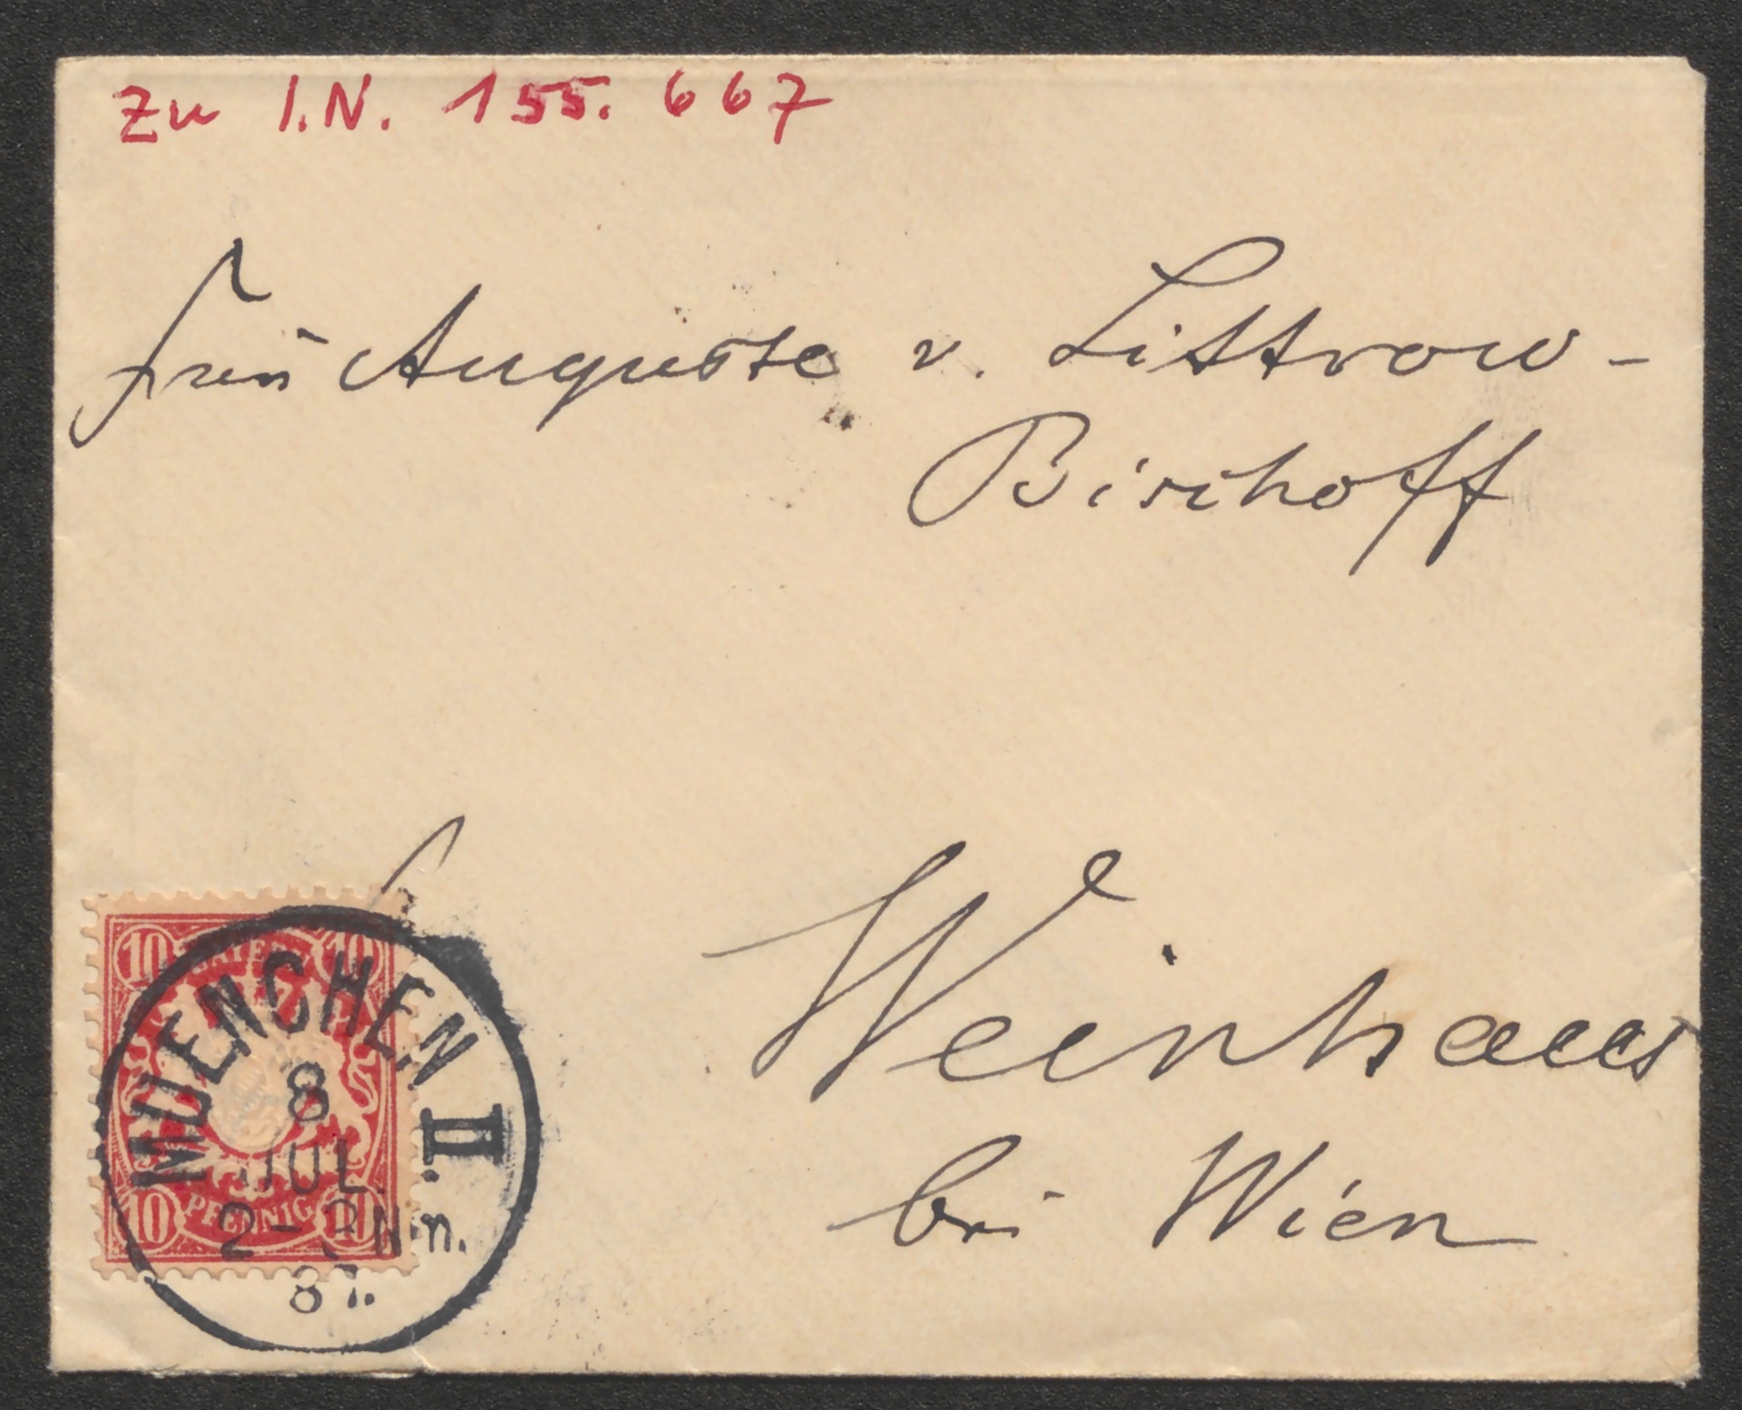 Zu I.N. 155.667
Frau Auguste v. Littrow-
Bischoff
Weinhaus
bei Wien
10 10
MUENCHEN II.
8
JUL.
2-3 Nn.
87.
10 PFENNIG 10